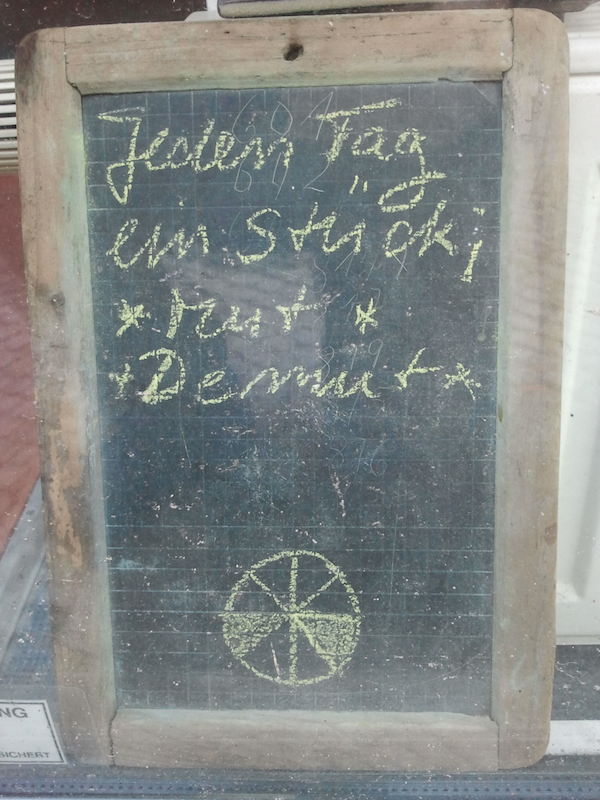 Jeden Tag
ein Stück;
*Mut *
*Demut*
NG
SICHERT